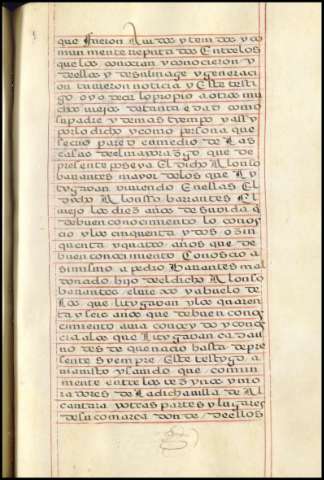 que fueron Auidos y tenidos y co
mun mente reputados Entre los
que los conocian y conocieron y
de ellos y de su linage y generacion
tuvieron noticia y Este testi
go oyo decir lo propio a otros mu
chos viejos de tanta edad como
su padre y de mas tiempo y assy
por lo dicho y como persona que
se crio pared en medio de Las
casas del mayorazgo que de
presente poseya El dicho Alonso
barantes mayor de los que li
tygavan viviendo En ellas El
dicho Alonsso barrantes El
viejo los diez años de su vida q
de buen conocimiento lo conos
cio y los cinquenta y dos o cin
quenta y quatro años que de
buen conocimiento Conoscio a
simismo a pedro barantes mal
donado hijo del dicho Alonso
barantes el viejo y abuelo de
Los que litygavan y los quaren
ta y seis años que de buen conoc
cimiento avia conocydo y conos
cia a los que Litygavan cada u
no desde que nacio hasta de pre
sente syempre Este testygo a
via visto y sauido que comun
mente entre los vezynos y mo
radores de La dicha villa de Al
cantara y otras partes y lugares
de su comarca donde de ellos